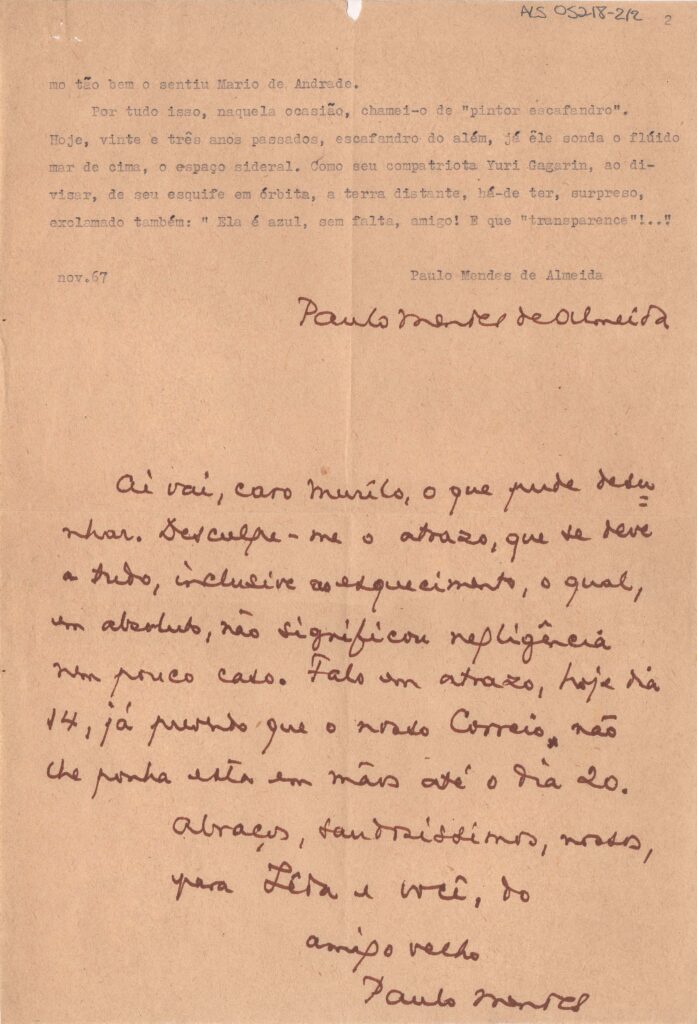 ALS 05218-2/2
2
mo tão bem o sentiu Mario de Andrade.
Por tudo isso, naquela ocasião, chamei-o de "pintor escafandro".
Hoje, vinte e três anos passados, escafandro do além, já êle sonda o flúido
mar de cima, o espaço sideral. Como seu compatriota Yuri Gagarin, ao di-
visar, de seu esquife em órbita, a terra distante, há-de ter, surpreso,
exclamado também: " Ela é azul, sem falta, amigo! E que "transparence"!.."
nov.67
Paulo Mendes de Almeida
Paulo Mendes de Almeida
Aí vai, caro Murilo, o que pude desu
nhar. Desculpe-me o atrazo, que se deve
a tudo, inclusive ao esquecimento, o qual,
em absoluto, não significou negligência
nem pouco caso. Falo em atrazo, hoje dia
14, já prevendo que o nosso Correio não
lhe ponha esta em mãos até o dia 20.
Abraços, saudosissimos, nossos,
para Lêda e você, do
amigo velho
Paulo Mendes